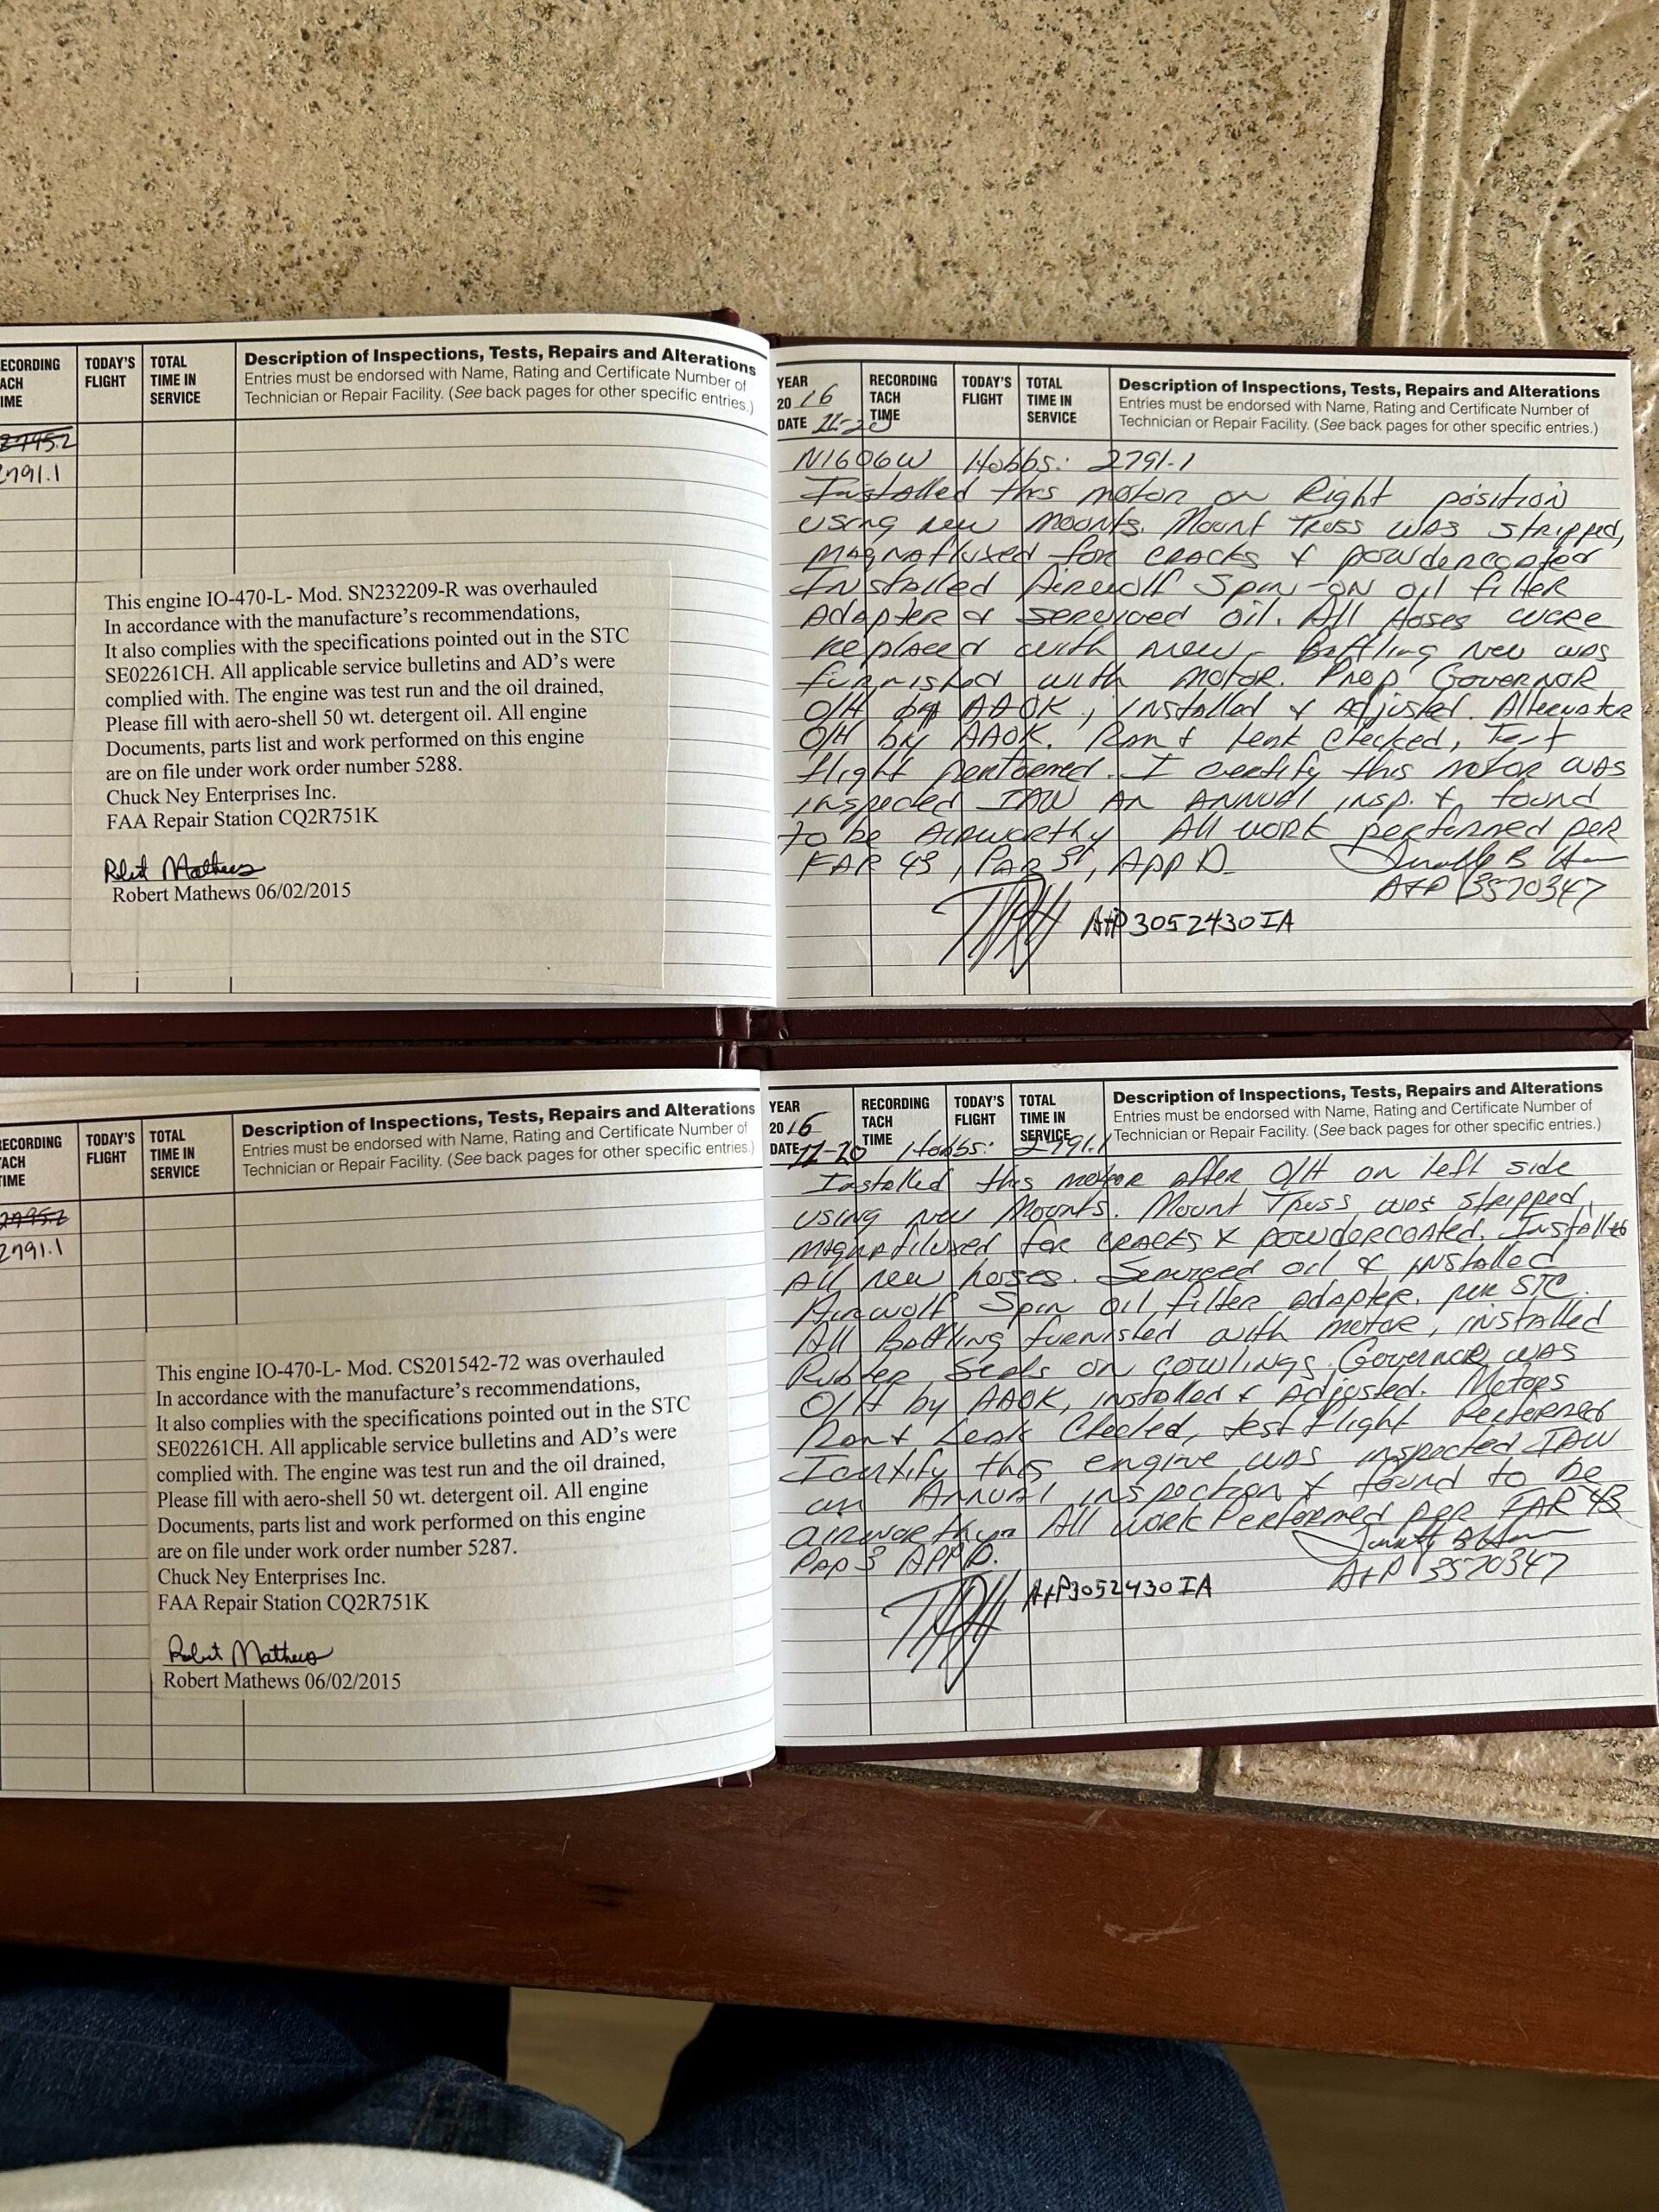 RECORDING TACH TIME
TODAY'S FLIGHT
TOTAL TIME IN SERVICE
Description of Inspections, Tests, Repairs and Alterations
Entries must be endorsed with Name, Rating and Certificate Number of
Technician or Repair Facility. (See back pages for other specific entries.)
2791.1
This engine IO-470-L- Mod. SN232209-R was overhauled
In accordance with the manufacture's recommendations,
It also complies with the specifications pointed out in the STC
SE02261CH. All applicable service bulletins and AD's were
complied with. The engine was test run and the oil drained,
Please fill with aero-shell 50 wt. detergent oil. All engine
Documents, parts list and work performed on this engine
are on file under work order number 5288.
Chuck Ney Enterprises Inc.
FAA Repair Station CQ2R751K
Robert Mathews
Robert Mathews 06/02/2015
YEAR 2016
DATE 11-20
RECORDING TACH TIME
TODAY'S FLIGHT
TOTAL TIME IN SERVICE
Description of Inspections, Tests, Repairs and Alterations
Entries must be endorsed with Name, Rating and Certificate Number of
Technician or Repair Facility. (See back pages for other specific entries.)
N1606W Hobbs: 2791.1
Installed this motor on Right position
using new mounts. Mount Truss was stripped,
magnafluxed for cracks & powdercoated
Installed Airwolf Spin-on oil filter
Adapter & serviced oil. All hoses were
replaced with new. Baffling new was
furnished with motor. Prop Governor
O/H by AAOK, installed & adjusted. Alternator
O/H by AAOK. Ran & leak checked, Test
flight performed. I certify this motor was
inspected IAW An ANNUAL insp. & found
to be Airworthy All work performed per
FAR 43, Par 3, APP D.
A+P 3520347
A+P 3052430 IA
RECORDING TACH TIME
TODAY'S FLIGHT
TOTAL TIME IN SERVICE
Description of Inspections, Tests, Repairs and Alterations
Entries must be endorsed with Name, Rating and Certificate Number of
Technician or Repair Facility. (See back pages for other specific entries.)
2791.1
This engine IO-470-L- Mod. CS201542-72 was overhauled
In accordance with the manufacture's recommendations,
It also complies with the specifications pointed out in the STC
SE02261CH. All applicable service bulletins and AD's were
complied with. The engine was test run and the oil drained,
Please fill with aero-shell 50 wt. detergent oil. All engine
Documents, parts list and work performed on this engine
are on file under work order number 5287.
Chuck Ney Enterprises Inc.
FAA Repair Station CQ2R751K
Robert Mathews
Robert Mathews 06/02/2015
YEAR 2016
DATE 11-20
RECORDING TACH TIME
TODAY'S FLIGHT
TOTAL TIME IN SERVICE
Description of Inspections, Tests, Repairs and Alterations
Entries must be endorsed with Name, Rating and Certificate Number of
Technician or Repair Facility. (See back pages for other specific entries.)
Hobbs: 2791.1
Installed this motor after O/H on left side
using new Mounts. Mount Truss was stripped,
magnafluxed for cracks & powdercoated. Installed
All new hoses. Serviced oil & installed
Airwolf Spin oil filter adapter. per STC.
All Baffling furnished with motor, installed
Rubber Seals on cowlings. Governor was
O/H by AAOK, installed & Adjusted. Motors
Ran & Leak Checked, test flight Performed
I certify this engine was inspected IAW
an Annual inspection & found to be
airworthy. All work Performed per FAR 43
Par 3 APP D.
A+P 3520347
A+P 3052430 IA